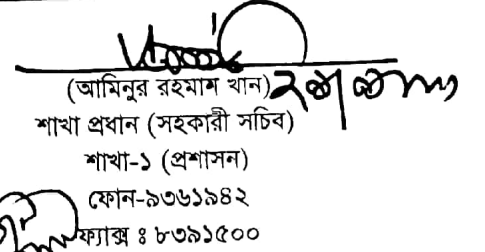 (আমিনুর রহমান খান)
শাখা প্রধান (সহকারী সচিব)
শাখা-১ (প্রশাসন)
ফোন-৯৩৬১৯৪২
ফ্যাক্স ঃ ৮৩৯১৫০০